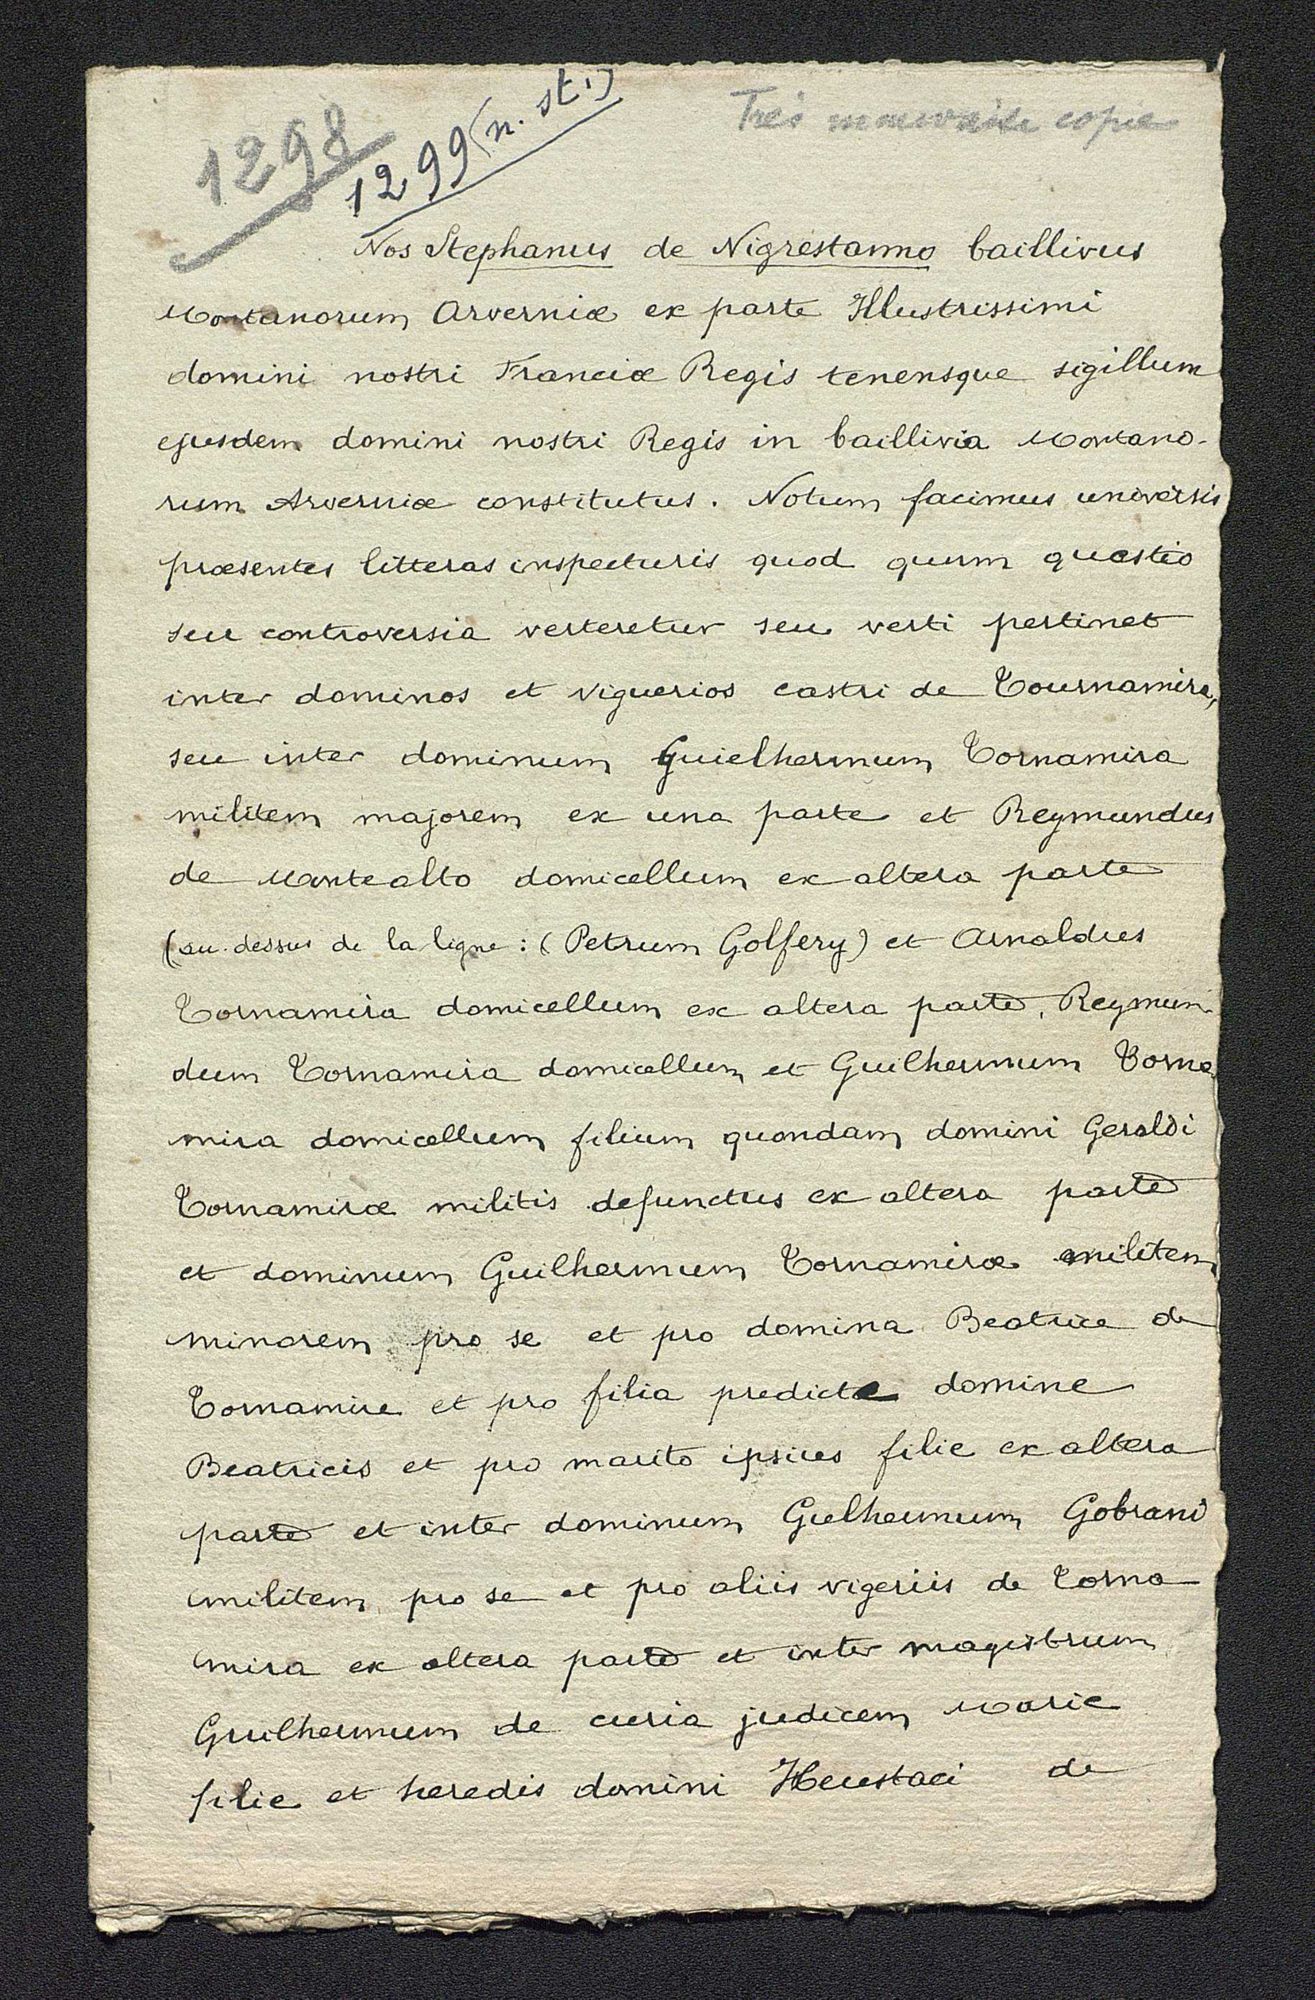 1298
1299 (n. st.)
Très mauvaise copie
Nos Stephanus de Nigrestanno baillivus
Montanorum Arverniæ ex parte Illustrissimi
domini nostri Franciæ Regis tenensque sigillum
ejusdem domini nostri Regis in baillivia Montano-
rum Arverniæ constitutus. Notum facimus universis
præsentes litteras inspecturis quod quum questio
seu controversia verteretur seu verti pertinet
inter dominos et viguerios castri de Tournamira,
seu inter dominum Guielhermum Tornamira
militem majorem ex una parte et Reymundus
de Montealto domicellum ex altera parte
(au-dessus de la ligne : (Petrum Golfery) et Arnaldus
Tornamira domicellum ex altera parte, Reymun-
dum Tornamira domicellum et Guilhermum Torna-
mira domicellum filium quondam domini Geraldi
Tornamiræ militis defunctus ex altera parte
et dominum Guilhermum Tornamiræ militem
minorem pro se et pro domina Beatrice de
Tornamire et pro filia predicte domine
Beatricis et pro marito ipsius filie ex altera
parte et inter dominum Guelhermum Gobrand
militem pro se et pro aliis vigeriis de Torna
mira ex altera parte et inter magistrum
Guilhermum de curia judicem Marie
filie et heredis domini Heustaci de